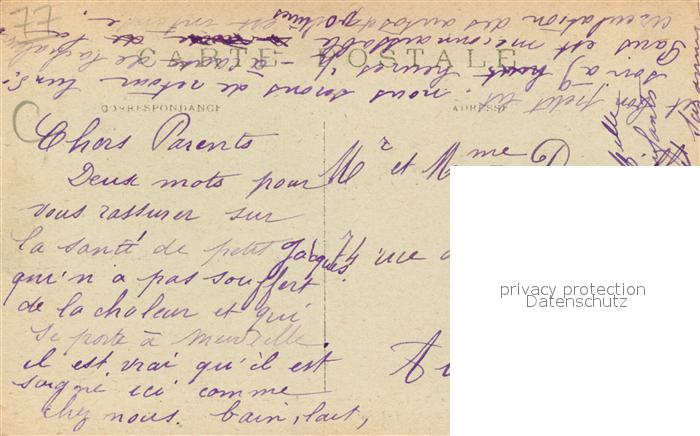 77
CARTE POSTALE
CORRESPONDANCE
ADRESSE
C
Chers Parents
Deux mots pour
vous rassurer sur
la santé de petit Jacques
qui n'a pas souffert
de la chaleur et qui
se porte à merveille.
il est vrai qu'il est
soigné ici comme
chez nous. bain, lait,
et son petit lit. nous serons de retour lundi
soir à 9 heures ½
Paris est méconnaissable
circulation des autos
est
Mr et Mme D
74 rue
Au
privacy protection
Datenschutz